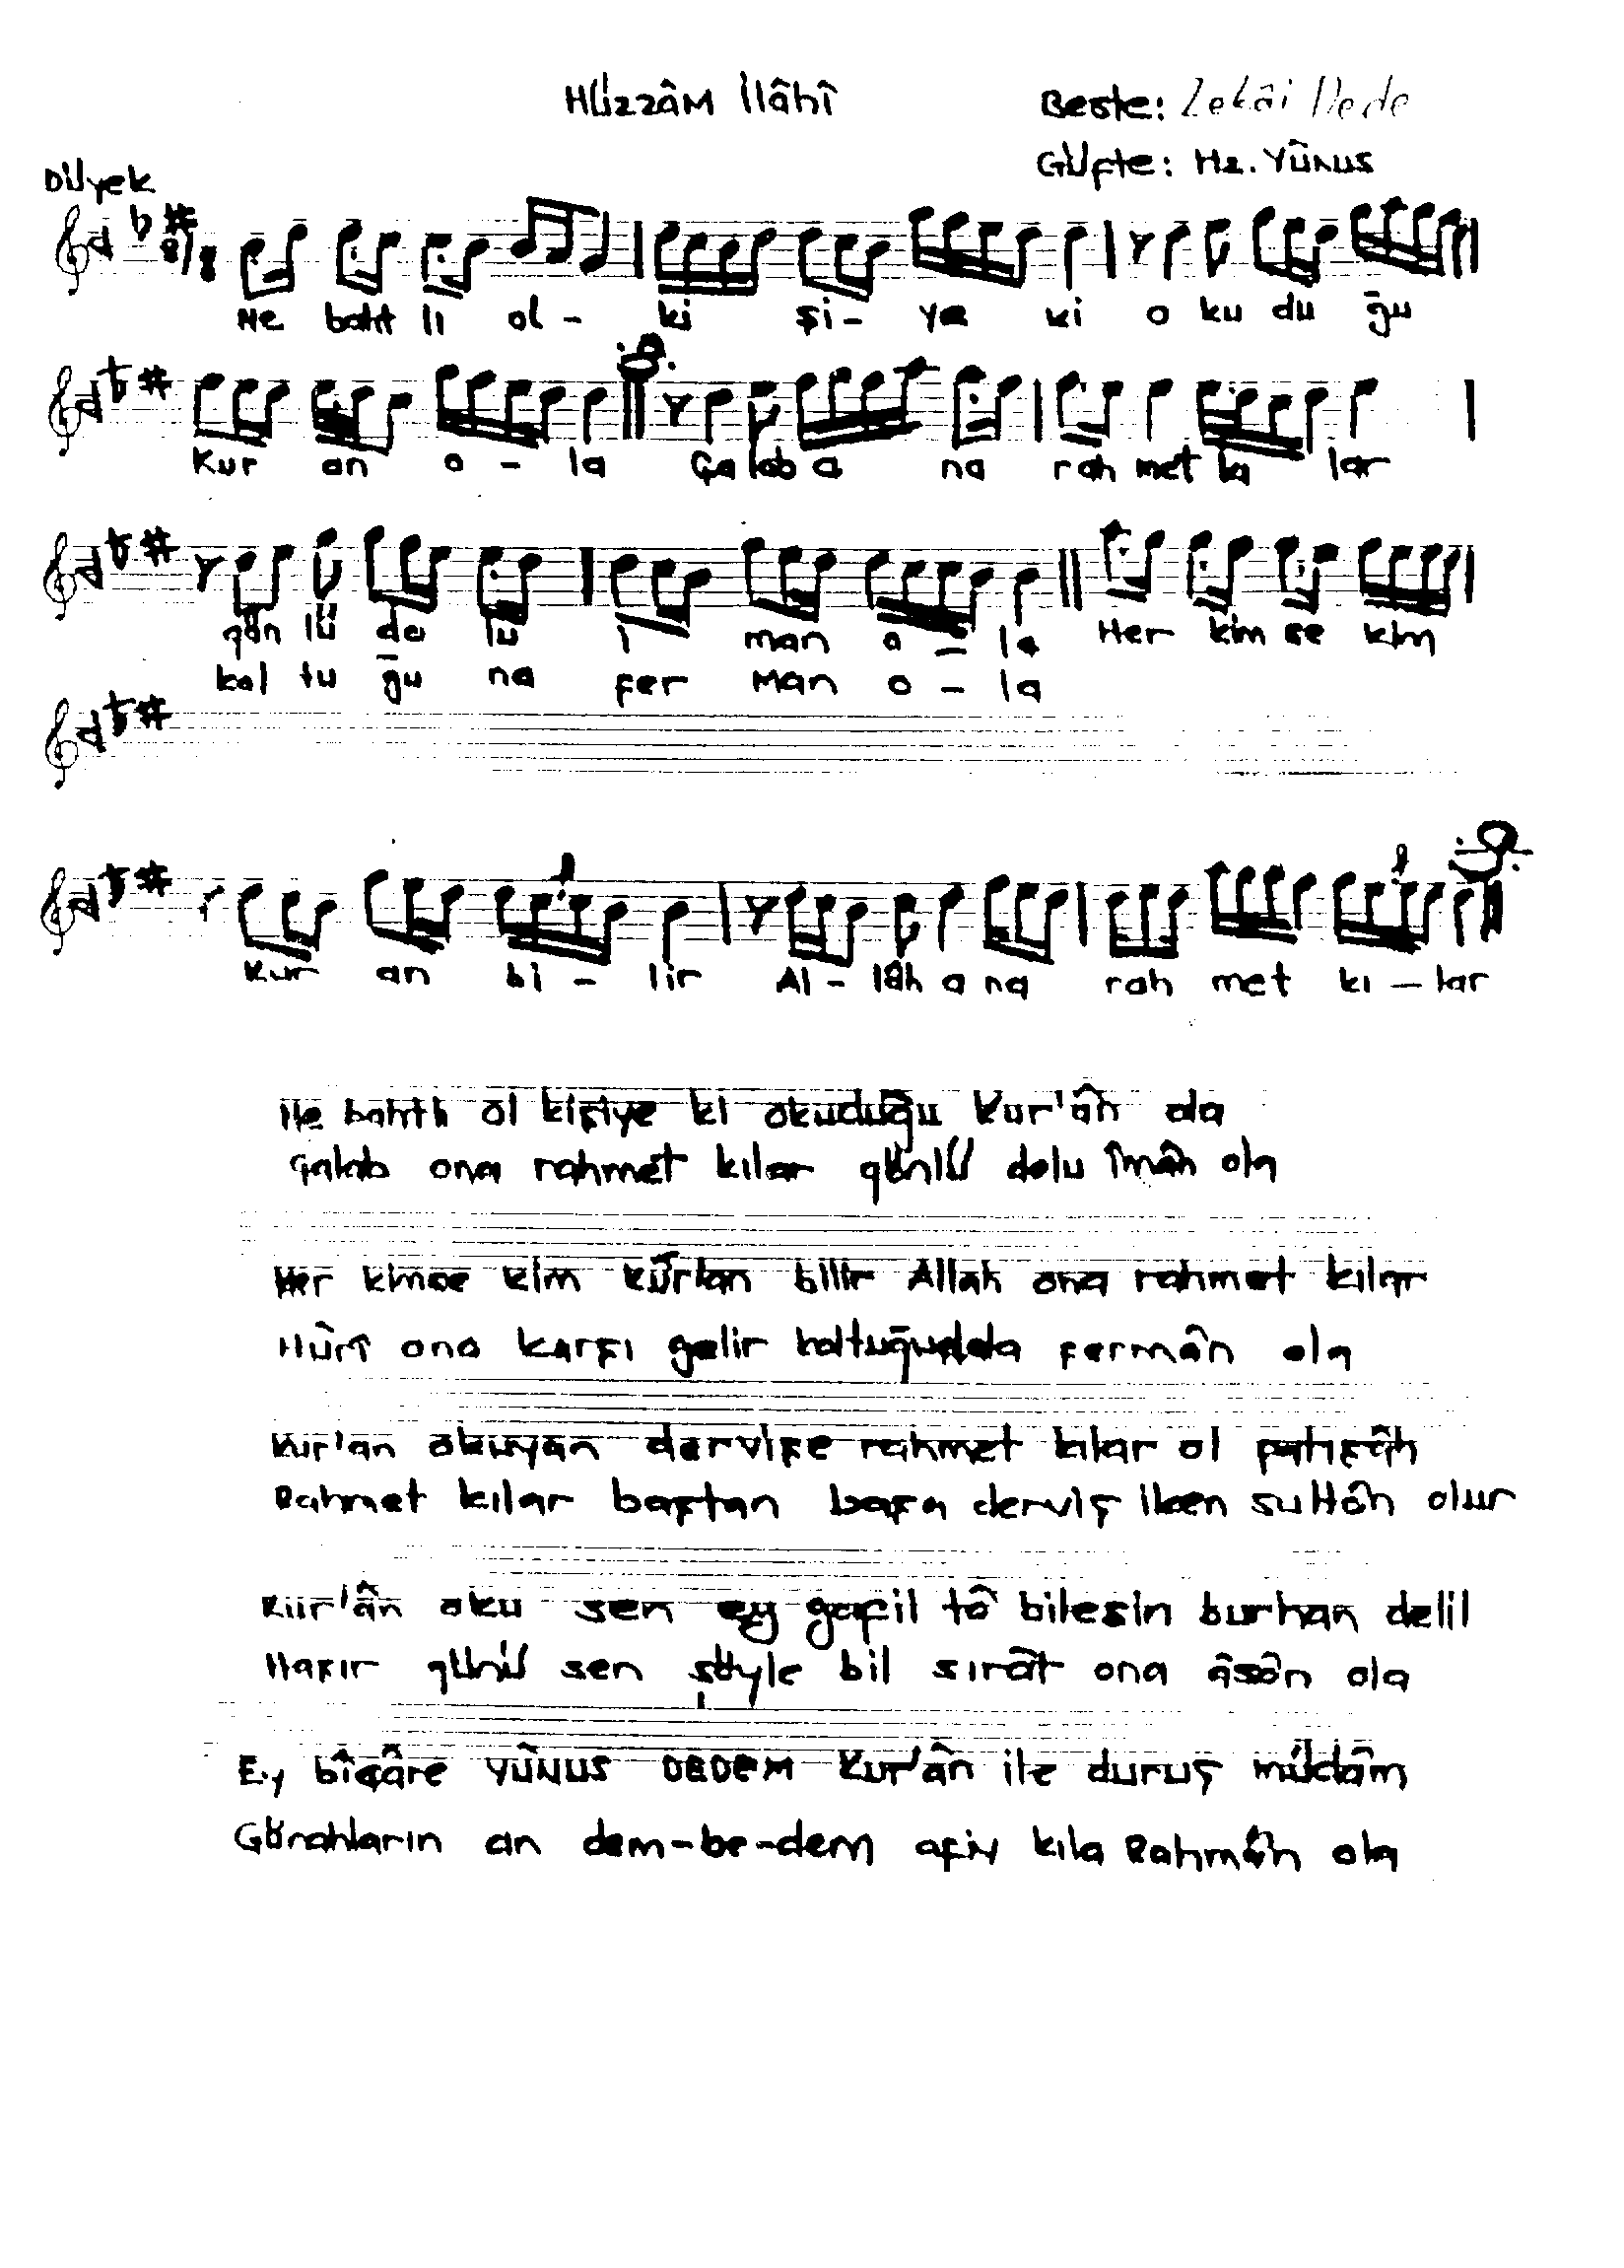 Hüzzâm İlâhî
Beste: Zekâi Dede
Güfte: Hz. Yûnus
Düyek
8/8
Ne baht lı ol - ki şi - ye ki o ku du ğu
Kur an o - la Çalab a na rah met kı lar
gön lü do lu i man o - la Her kim se kim
kol tu ğu na fer man o - la
Kur an bi - lir Al - lâh a na rah met kı - lar
Ne bahtlı ol kişiye ki okuduğu Kur'ân ola
Çalab ona rahmet kılar gönlü dolu îmân ola
Her kimse kim Kur'an bilir Allah ona rahmet kılar
Hûrî ona karşı gelir koltuğunda fermân ola
Kur'an okuyan dervişe rahmet kılar ol padişâh
Rahmet kılar baştan başa derviş iken sultân olur
Kur'ân oku sen ey gafil tâ bilesin burhan delil
Haşır günü sen şöyle bil sırât ona âsân ola
Ey bîçâre YÛNUS DEDEM Kur'ân ile duruş müdâm
Günahların an dem-be-dem afiv kıla Rahmân ola